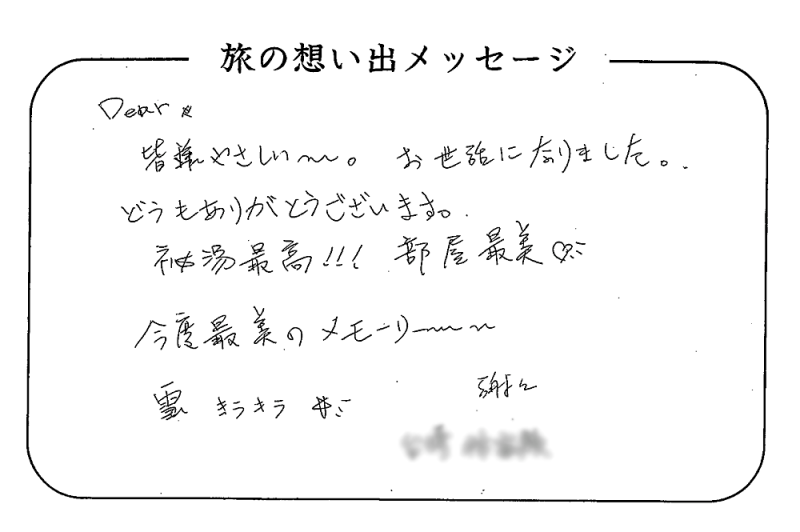 旅の想い出メッセージ
Dear
皆様やさしい〜。お世話に なりました。
どうもありがとうございます。
神湯最高!!! 部屋最美♡
今度最美の メモーリー〜〜
雪 キラキラ
謝々